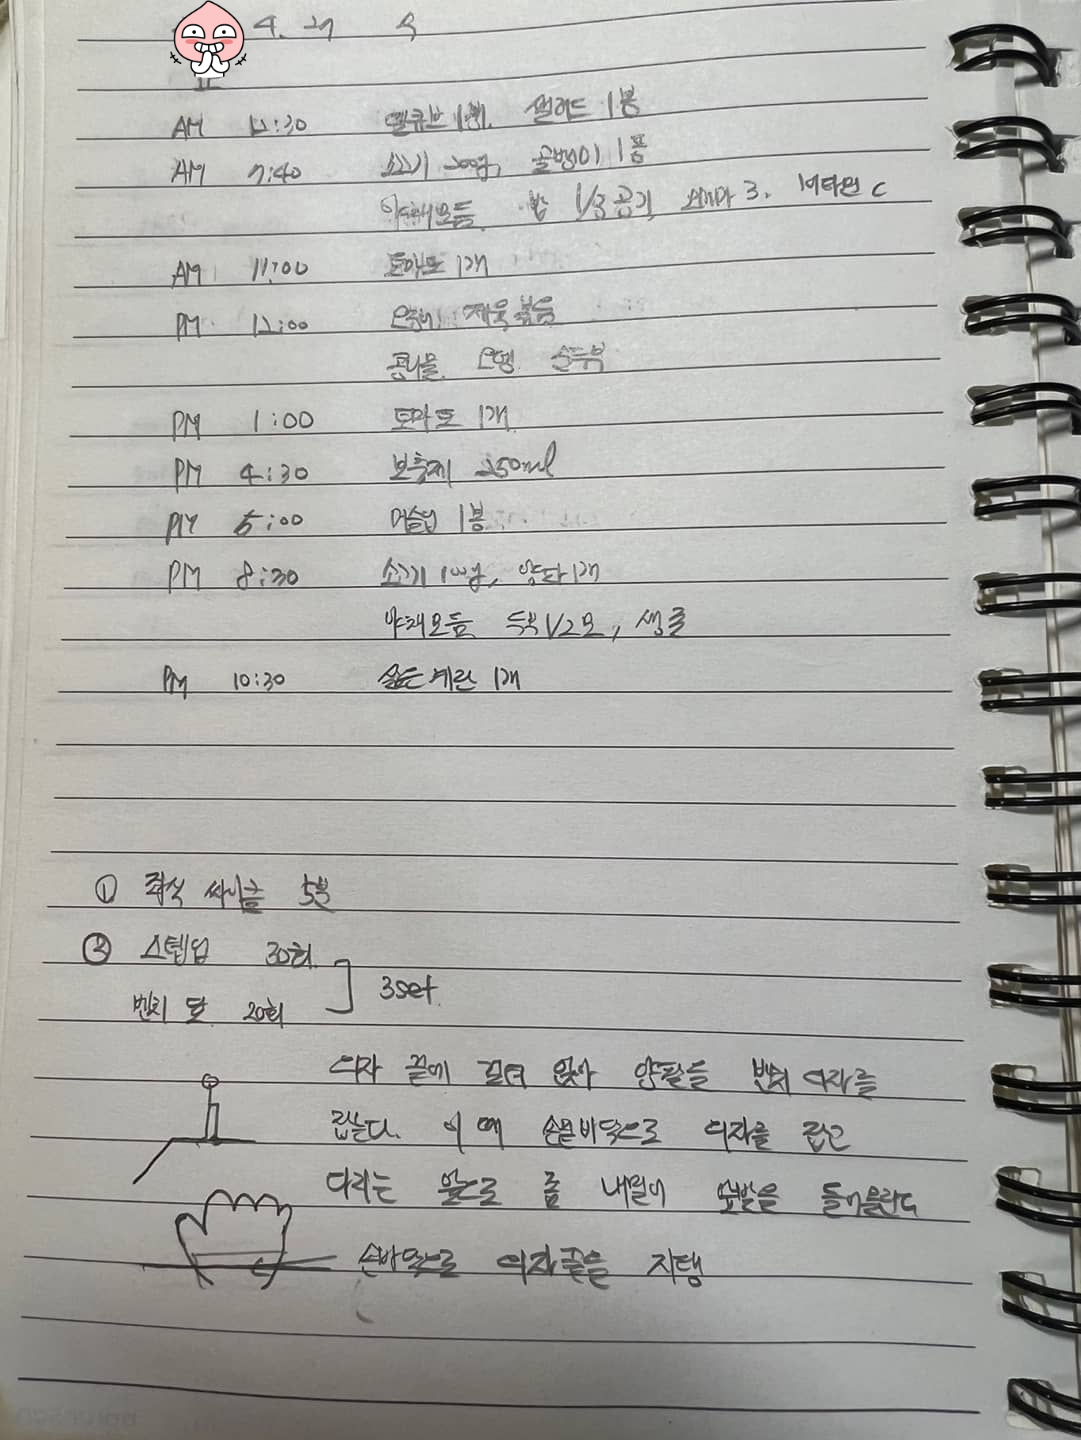 4. 27 수
AM 12:30 밀큐브 1개. 샐러드 1봉
AM 7:40 소고기 200g, 골뱅이 1폼
야채모듬. 밥 1/3공기 3. 비타민 C
AM 11:00 토마토 1개
PM 12:00 제육볶음
콩나물. 오뎅. 순두부
PM 1:00 토마토 1개
PM 4:30 보충제 250ml
PM 5:00 머슬업 1봉
PM 8:30 소고기 100g, 양파 1개
야채모듬 두부 1/2모, 생굴
PM 10:30 삶은계란 1개
① 좌식 싸이클 5분
② 스텝업 30회
벤치 딥 20회
3set
의자 끝에 걸터 앉아 양팔을 벤치 의자를
잡는다. 이 때 손끝바닥으로 의자를 잡고
다리는 앞으로 좀 내밀어 을 들어올린다
손바닥으로 의자끝을 지탱